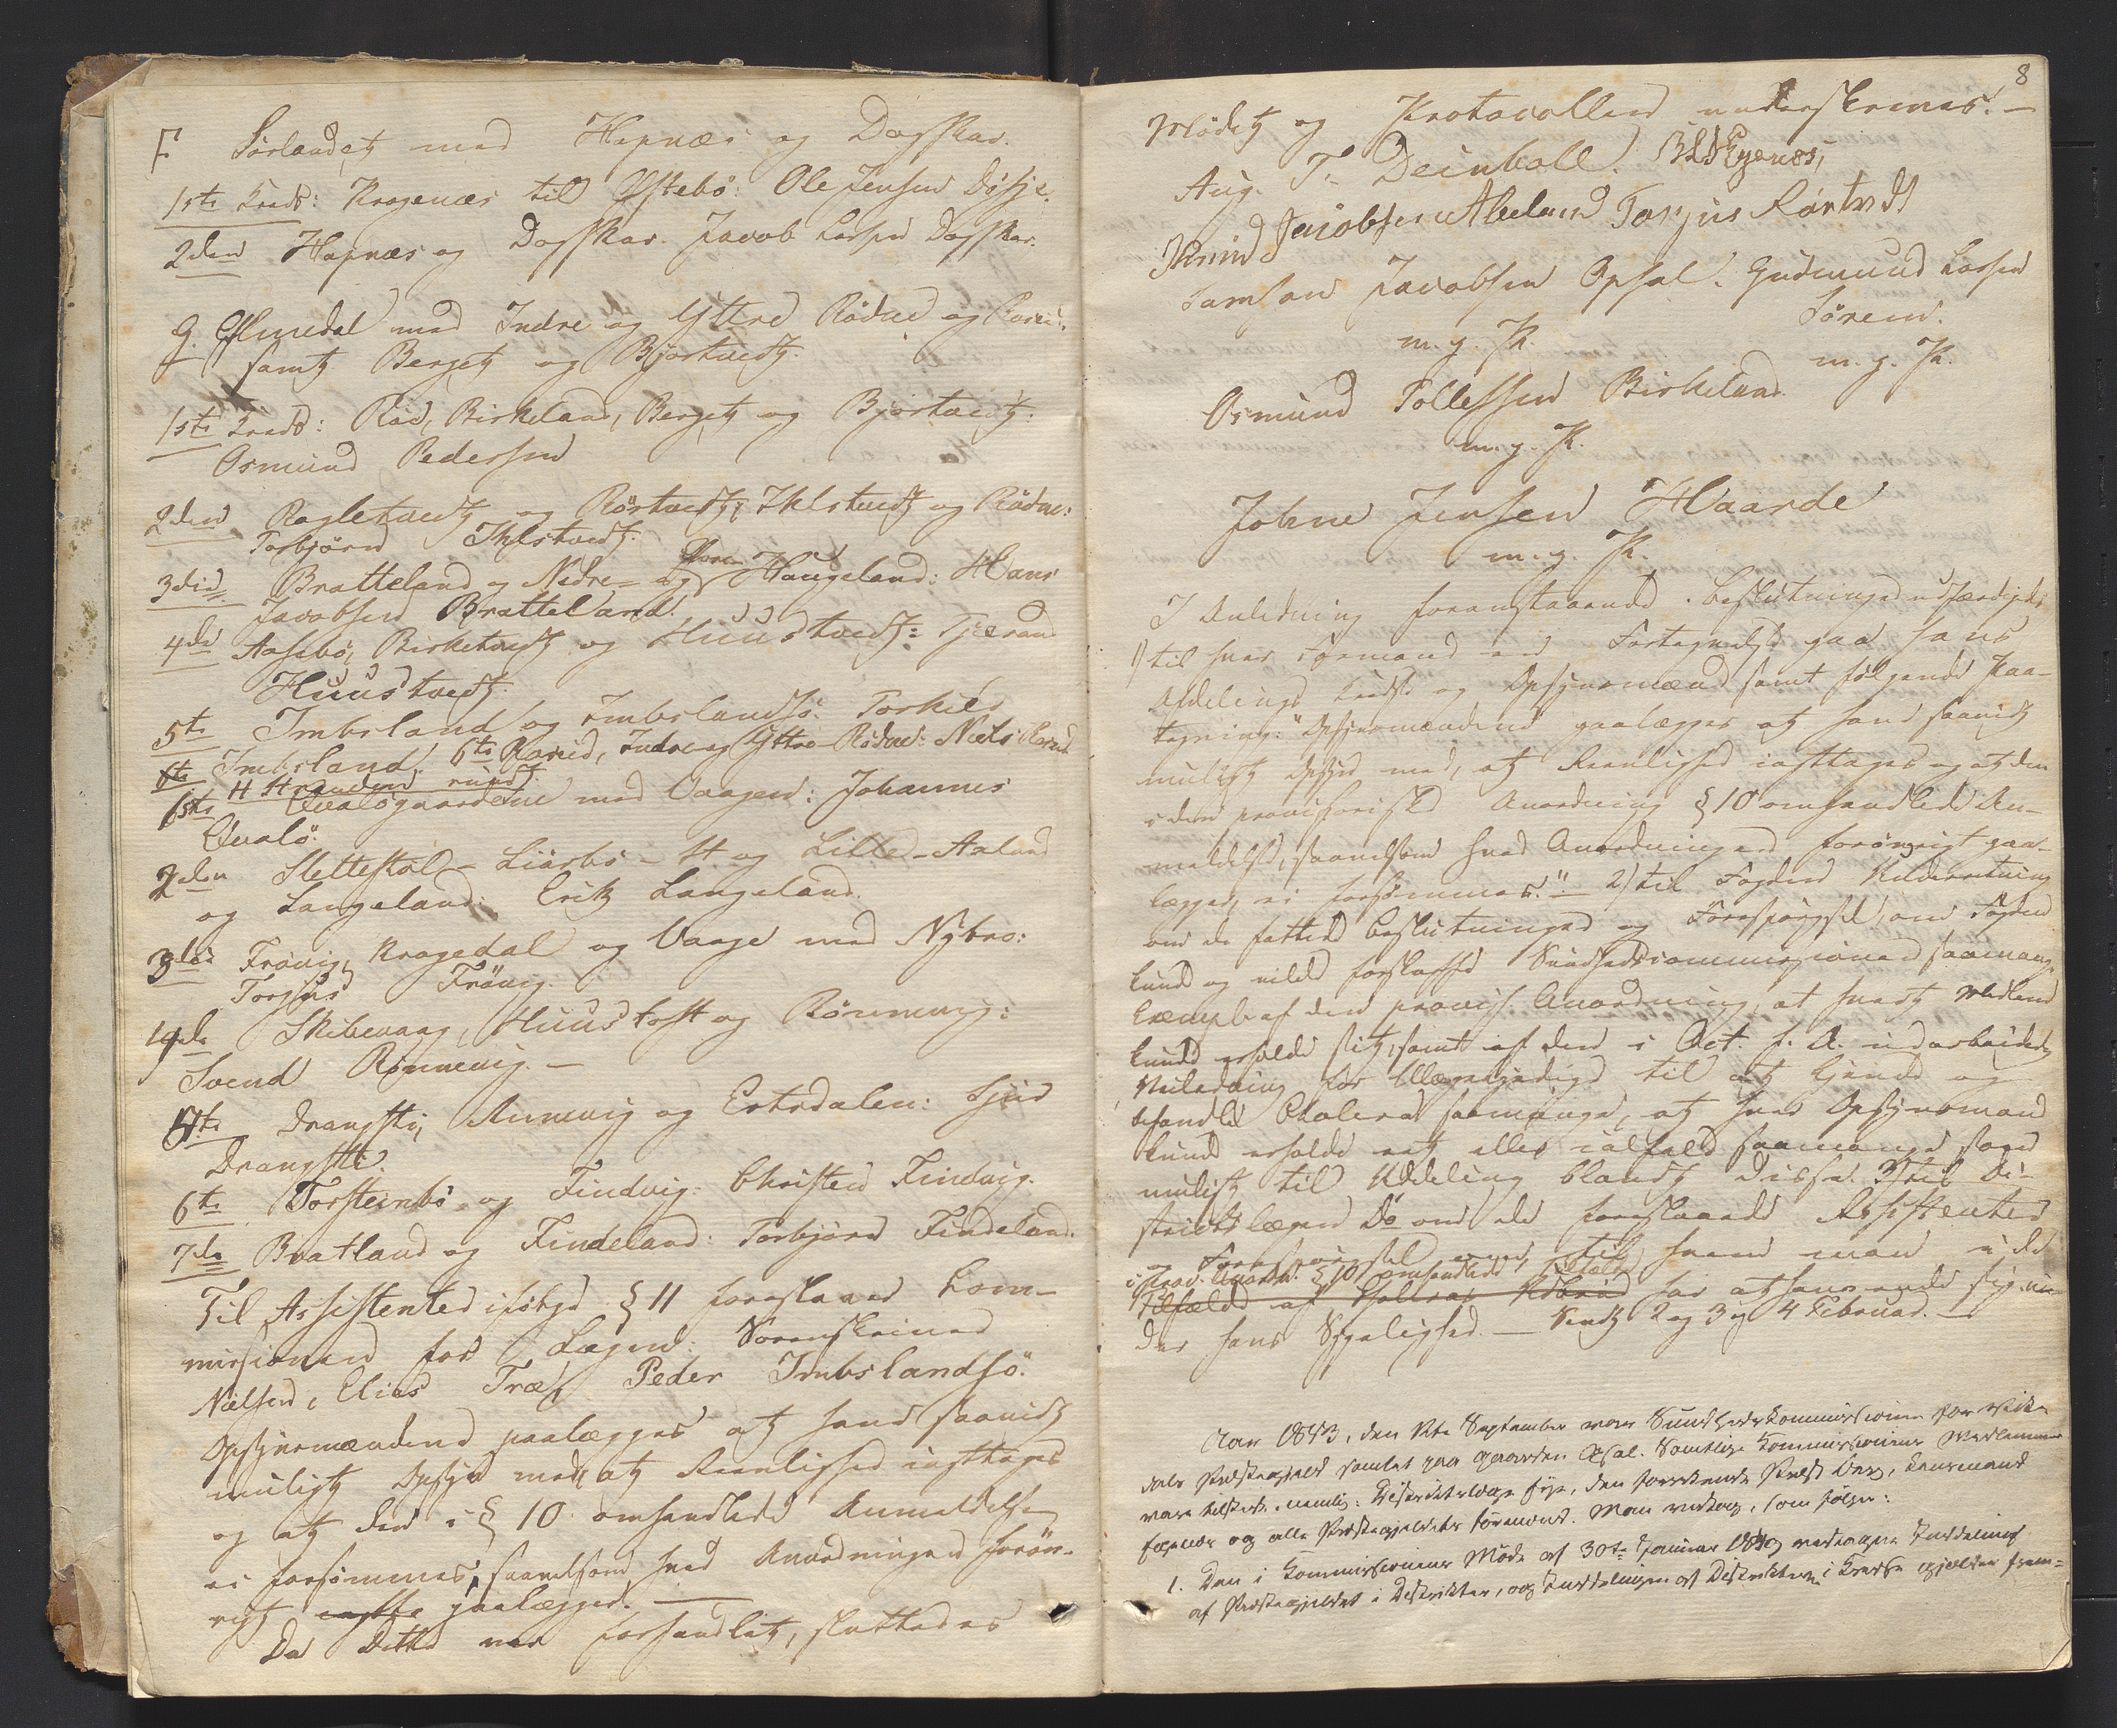 F. Sørlandet med Hapnæs og Dagskar.
1ste Kreds: Kragenæs til Østebø: Ole Jensen Døsje.
2den Hapnæs og Dagskar. Jacob Larsen Dagskar.
G. Ølmedal med Indre og Yttre Rødne og Roveid
samt Berget og Bjortvedt.
1ste Kreds: Røe, Birkeland, Berget og Bjortvedt:
Osmund Pedersen
2den Ragletvedt og Rørtvedt, Ihlstvedt og Rødne:
Torbjørn Ihlstvedt.
3die Bratteland og Nedre- og Øvre- Haugeland: Hans
Jacobsen Bratteland.
4de Aasebø, Birketvedt og Huustvedt: Tjæran
Huustvedt.
5te Imbsland og Imbslandsø: Torkild
Imbsland. 6te Roveid, Indre og Yttre Rødne: Niels Roveid
6te H Stranden rundt.
1ste Qvaløgaardene med Vaagen: Johannes
Qvalø.
2den Slettestøl - Liarbø - St. og Lille-Aaland
og Langeland: Erik Langeland.
3die Frøvig, Kragedal og Vaage med Nybro:
Torjus Frøvig.
4de Skibevaag, Huustoft og Rønnevig:
Svend Rønnevig. -
5te Drangsti, Annevig og Ertsdalen: Sjur
Drangsti.
6te Torsteinbø og Findvig: Christen Findvig.
7de Bratland og Findeland: Torbjørn Findeland.
Til Assistenter ifølge § 11 foreslaaer Com-
missionen for Lægen: Sørenskriver
Nielsen, Elias Træ, Peder Imbslandsø.
Opsynsmændene paalægges at have saavidt
muligt Opsyn med, at Reenlighed iagttages
og at den i § 10 omhandlede Anmeldelse
ei forsømmes, saavelsom hvad Anordningen forøv-
rigt paalægger. -
Da Dette var forhandlet, sluttedes
8
Mødet og Protocollen underskreves. -
Aug. T. Deinboll. Egenæs,
Knud Jacobsen Abeland Torjus Rørtvedt
Samson Jacobsen Opsal. Gudmund Larsen
Søreim.
m. g. P. m. g. P.
Osmund Tollefsen Birkeland.
m. g. P.
Johne Jensen Haarde
m. g. P.
I Anledning foranstaaende Beslutninger udfærdiges
1) til hver Formand en Fortegnelse paa hans
Afdelings Kredse og Opsynsmænd samt følgende Paa-
tegning: "Opsynsmændene paalægges at have saavidt
muligt Opsyn med, at Reenlighed iagttages og at den
i den provisoriske Anordning § 10 omhandlede An-
meldelse, saavelsom hvad Anordningen forøvrigt paa-
lægger, ei forsømmes." - 2) til Fogden Underretning
om de fattede Beslutninger og Forespørgsel, om Fogden
kunde og vilde forskaffe Sundhedscommissionen saamange
Exempl. af den provis. Anordning, at hvert Medlem
kunde erholde sit, samt af den i Oct. f. A. udarbeidede
Veiledning for Ulægekyndige til at kjende og
behandle Cholera saamange, at hver Opsynsmand
kunde erholde eet eller ialfald saamange som
muligt til Uddeling blandt disse. 3) til Di-
strictslægen Do om de foreslaaede Assistenter
og Forespørgsel om, til hvem man i de
i Prov. Anordn. § 10 omhandlede Tilfælde
Tilfælde af Choleras Udbrud har at henvende sig un-
der hans Sygelighed. - Sendt 2 og 3 og 4 Februar. -
Aar 1853, den 12te September var Sundhedskommissionen for Vike-
dals Præstegjeld samlet paa Gaarden Opsal. Samtlige Kommissionens Medlemmer
vare tilstede, nemlig: Districtslæge Fye, den forrettende Præst Berg, Lensmand
Egenæs og alle Præstegjeldets Formænd. Man vedtog, som følger:
1. Den i Kommissionens Møde af 30te Januar 1849 vedtagne Inddeling
af Præstegjeldet i Distrikter, og Inddelingen af Distrikterne i Kredse gjælder frem-